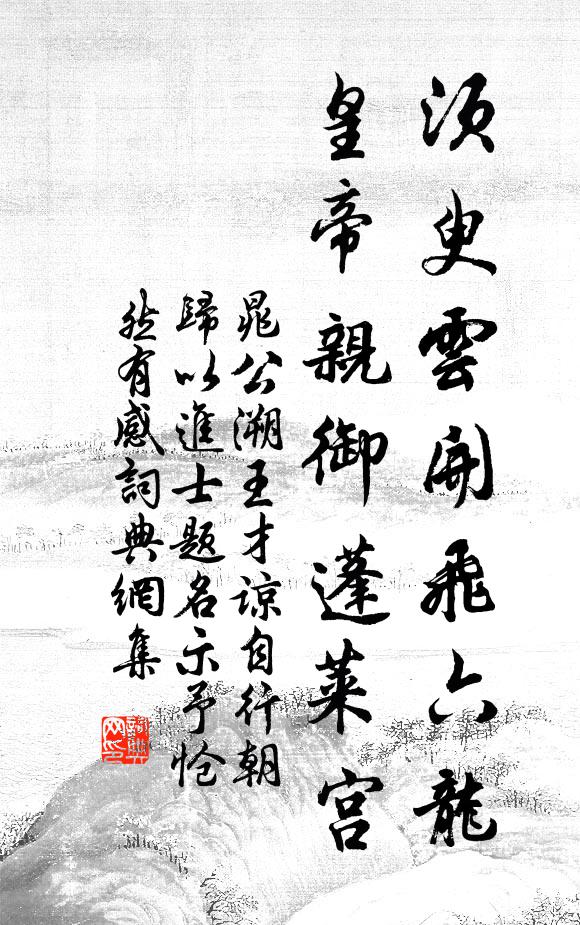 須臾雲開飛六龍
皇帝親御蓬萊宮
晁公溯王才諒自行朝
歸以進士題名示予愴
然有感詞典網集